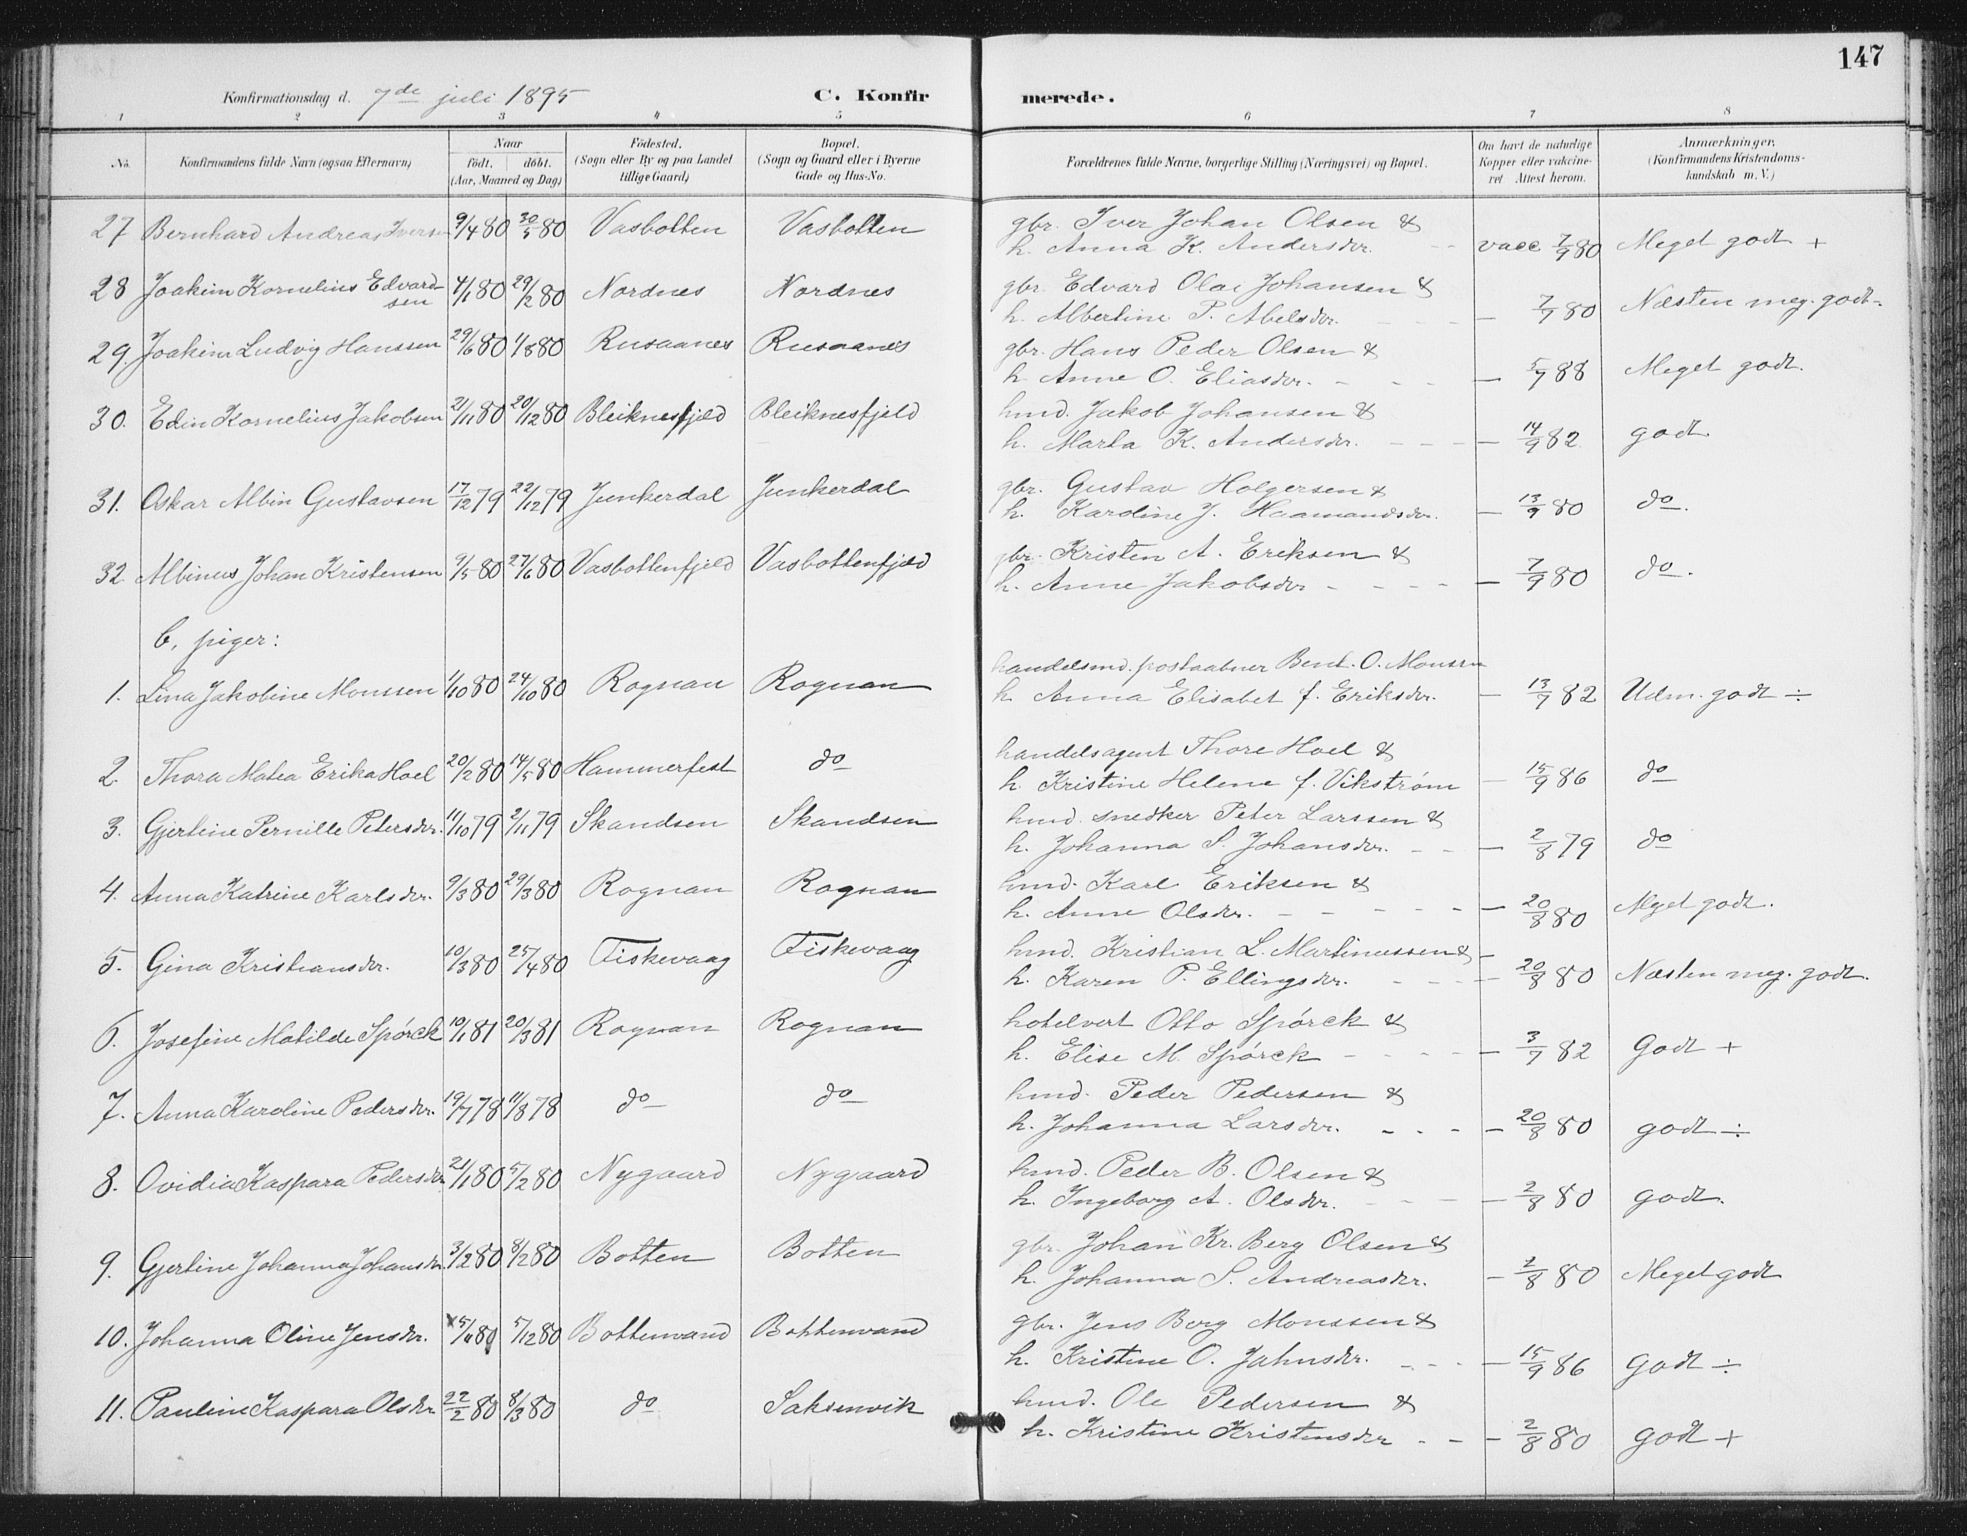 147
Konfirmationsdag d. 7de juli 1895 C. Konfirmerede.
1 2 3 4 5 6 7 8
No. Konfirmandens fulde Navn (ogsaa Efternavn) Naar födt. döbt. (Aar, Maaned og Dag) Födested. (Sogn eller By og paa Landet tillige Gaard) Bopæl. (Sogn og Gaard eller i Byerne Gade og Hus-No. Forældrenes fulde Navne, borgerlige Stilling (Næringsvei) og Bopæl. Om havt de naturlige Kopper eller vakcineret Attest herom. Anmærkninger. (Konfirmandens Kristendomskundskab m. V.)
27 Bernhard Andreas Iversen 9/4 80 30/5 80 Vasbotten Vasbotten gbr. Iver Johan Olsen &
h. Anna K. Andersdtr. vacc 7/9 80 Meget godt +
28 Joakim Kornelius Edvardsen 4/1 80 29/2 80 Nordnes Nordnes gbr. Edvard Olai Johansen &
h. Albertine P. Abelsdtr. - 7/9 80 Næsten meg. godt -
29. Joakim Ludvig Hanssen 29/6 80 1/8 80 Rusaanes Rusaanes gbr. Hans Peder Olsen &
h. Anne O. Eliasdtr. - 5/7 88 Meget godt.
30. Edin Kornelius Jakobsen 21/11 80 20/12 80 Bleiknesfjeld Bleiknesfjeld hmd. Jakob Johansen &
h. Marta K. Andersdtr. - 14/9 82 godt
31. Oskar Albin Gustavsen 17/12 79 22/12 79 Junkerdal Junkerdal gbr. Gustav Holgersen &
h. Karoline J. Haamandsdtr. - 13/9 80 do.
32 Albinus Johan Kristensen 9/5 80 27/6 80 Vasbottenfjeld Vasbottenfjeld gbr. Kristen A. Eriksen &
h. Anne Jakobsdtr - 7/9 80 do.
b, piger:
1. Lina Jakobine Monssen 1/10 80 24/10 80 Rognan Rognan handelsmd. postaabner Bent. O. Monssen
h Anna Elisabet f. Eriksdtr. - 13/9 82 Udm. godt ÷
2. Thora Matea Erika Hoel 20/2 80 14/5 80 Hammerfest do handelsagent Thore Hoel &
h. Kristine Helene f. Vikstrøm - 15/9 86 do
3. Gjertine Pernille Petersdtr. 11/10 79 2/11 79 Skandsen Skandsen hmd. snedker Peter Larssen &
h. Johanna S. Johansdtr. - 2/8 79 do
4. Anna Katrine Karlsdtr. 9/3 80 29/3 80 Rognan Rognan hmd. Karl Eriksen &
h. Anne Olsdtr. - 20/8 80 Meget godt.
5. Gina Kristiansdtr. 10/3 80 25/4 80 Fiskevaag Fiskevaag hmd. Kristian L. Martinussen &
h. Karen P. Ellingsdtr. - 20/8 80 Næsten meg. godt.
6. Josefine Matilde Spørck 10/1 81 20/3 81 Rognan Rognan hotelvert Otto Spørck &
h. Elise M. Spørck - 3/7 82 Godt +
7. Anna Karoline Pedersdtr. 19/7 78 11/8 78 do do hmd. Peder Pedersen &
h. Johanna Larsdtr. - 20/8 80 godt ÷
8. Ovidia Kaspara Pedersdtr 21/1 80 5/2 80 Nygaard Nygaard hmd. Peder B. Olsen &
h. Ingeborg A. Olsdtr. - 2/8 80 godt.
9. Gjertine Johanna Johansdtr 3/2 80 8/2 80 Botten Botten gbr. Johan Kr. Berg Olsen &
h. Johanna S. Andreasdtr. - 2/8 80 Meget godt
10. Johanna Oline Jensdtr. 5/11 80 5/12 80 Bottenvand Bottenvand gbr. Jens Berg Monssen &
h. Kristine O. Jahnsdtr. - 15/9 86 Godt ÷
11. Pauline Kaspara Olsdtr 22/2 80 8/3 80 do Saksenvik hmd. Ole Pedersen &
h. Kristine Kristensdtr - 2/8 80 godt +